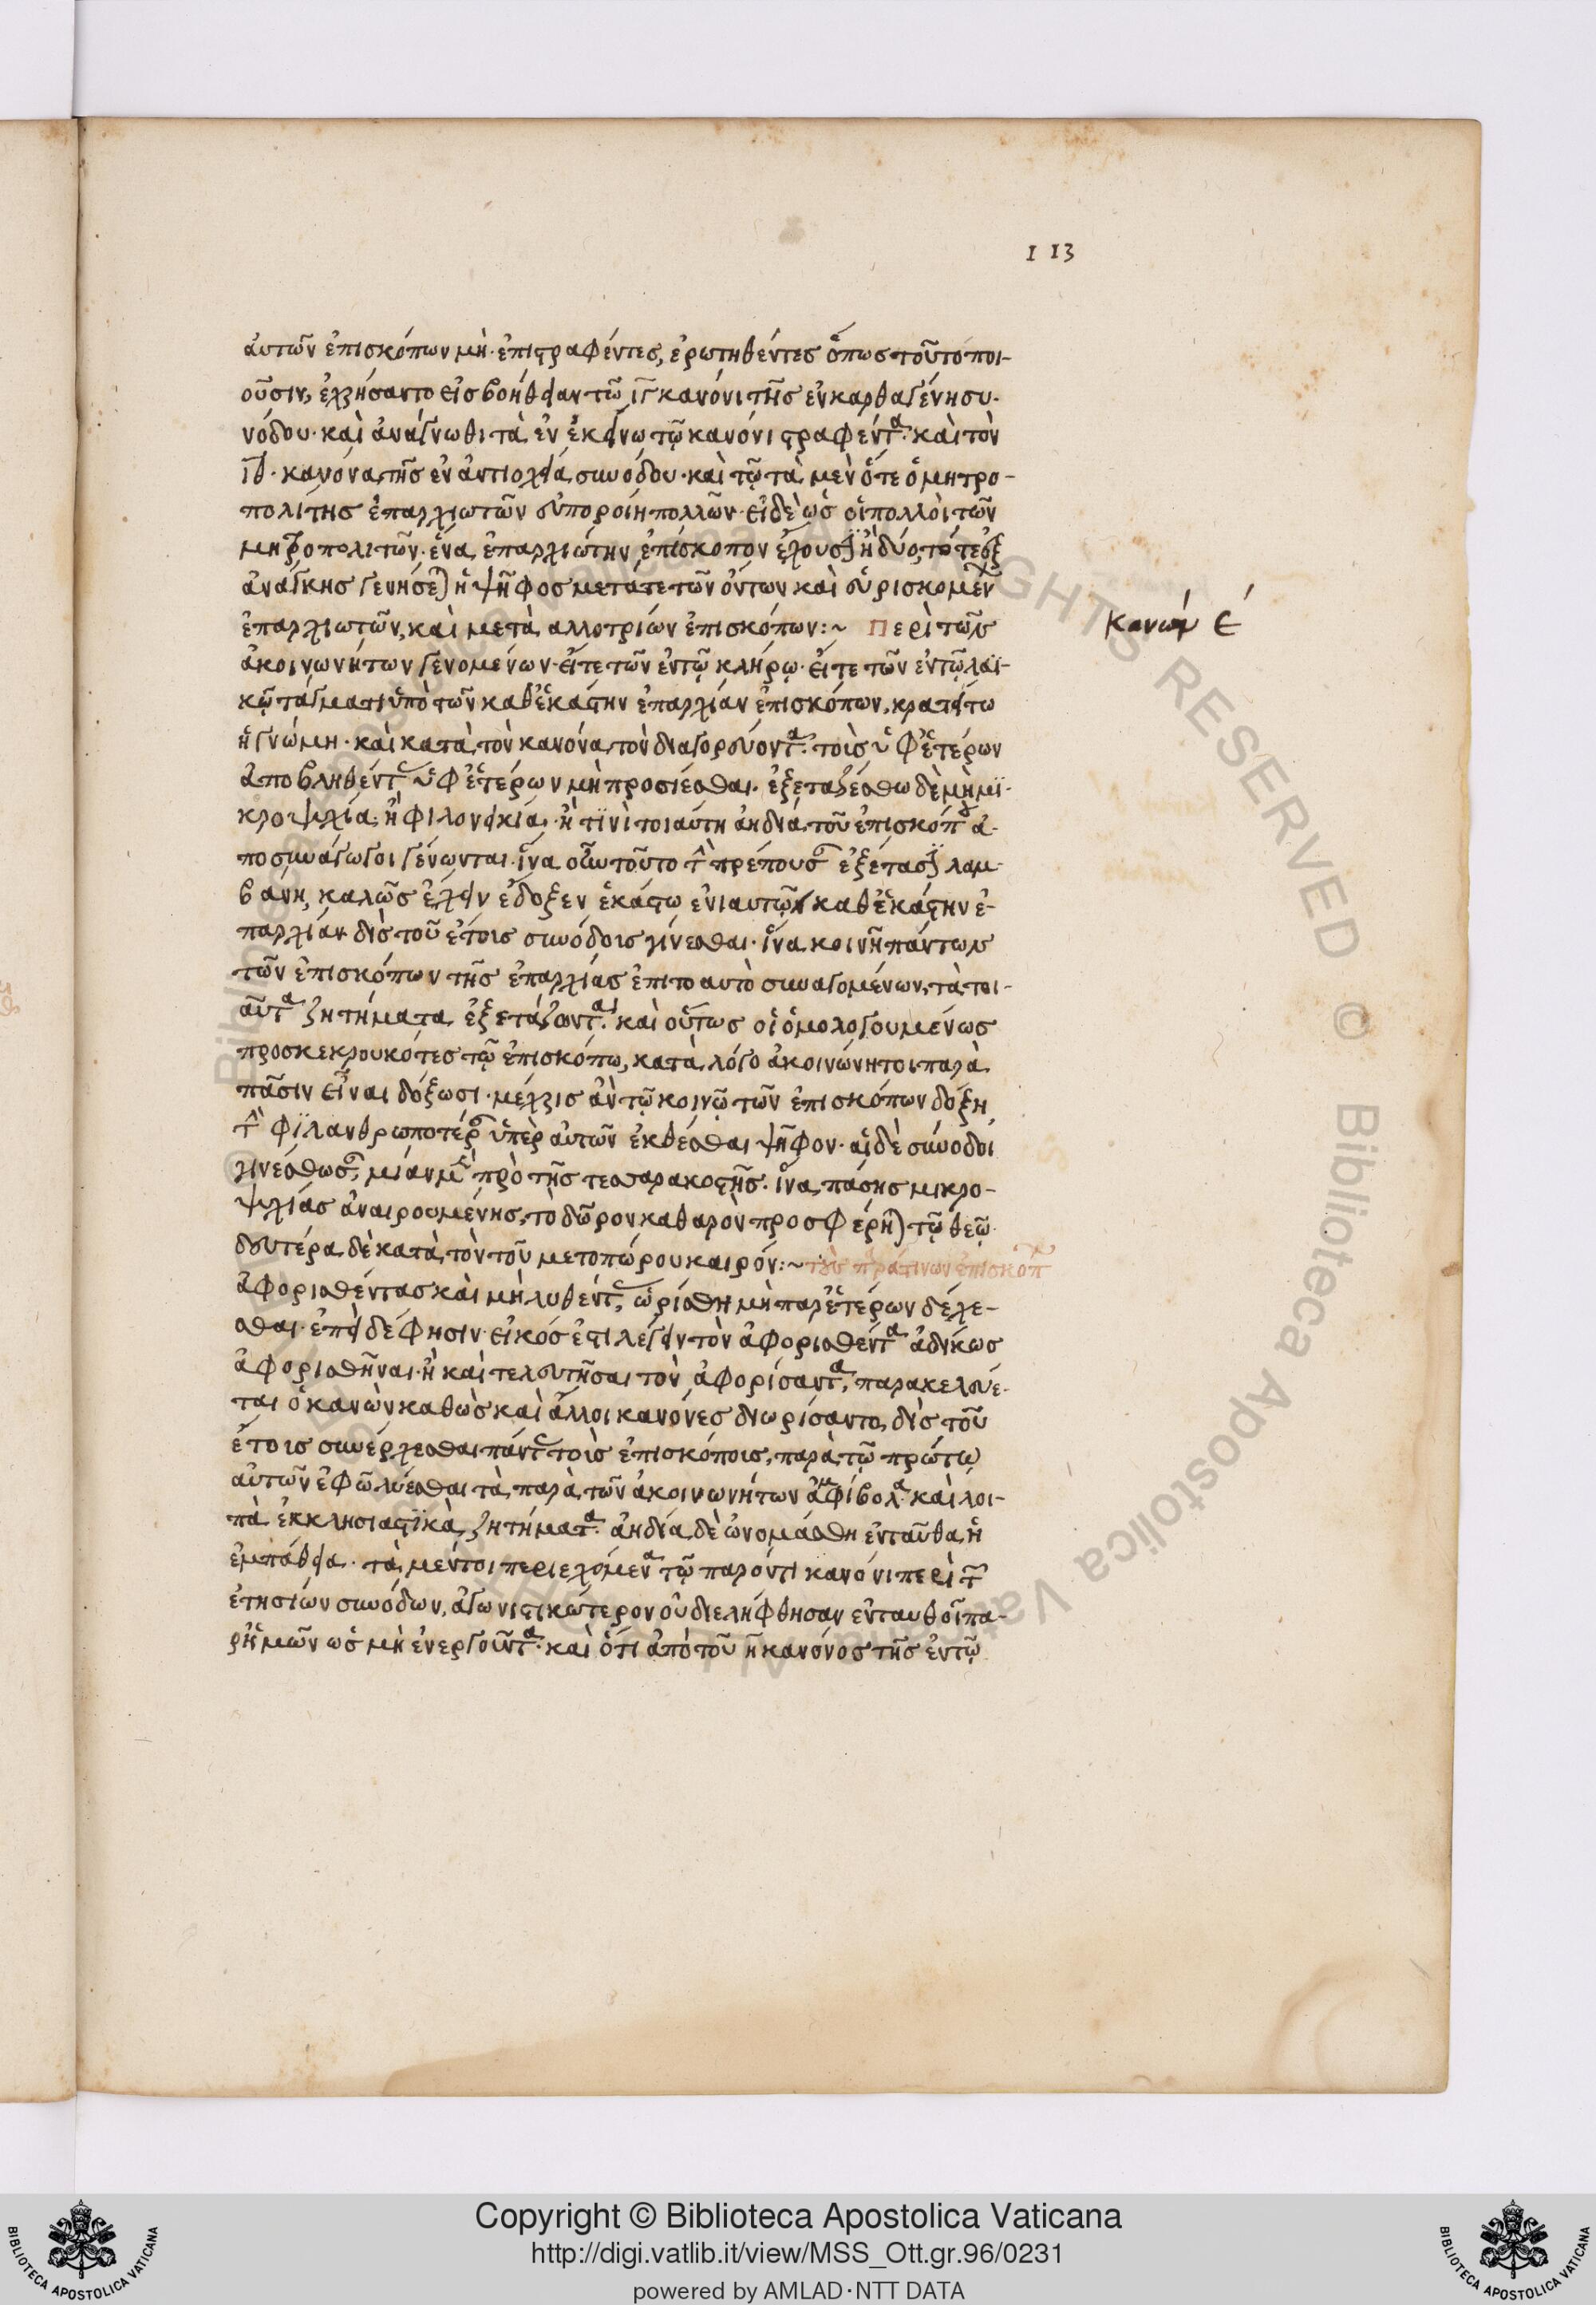 113
αὐτῶν ἐπισκόπων μὴ ἐπιτραφέντες, ἐρωτηθέντες ὅπως τοῦτο ποι-
οῦσιν, ἐχρήσαντο εἰς βοήθειαν τῶ ιγ κανόνι τῆς ἐν καρθαγένη συ-
νόδου· καὶ ἀνάγνωθι τὰ ἐν ἐκείνω τῷ κανόνι γραφέντα· καὶ τὸν
ιθ· κανόνα τῆς ἐν ἀντιοχεία συνόδου· καὶ τῷ τὰ μὲν ὅτε ὁ μητρο-
πολίτης ἐπαρχιωτῶν εὐποροίη πολλῶν· εἰ δὲ ὡς οἱ πολλοὶ τῶν
μητροπολιτῶν· ἕνα ἐπαρχιώτην ἐπίσκοπον ἔχουσιν ἢ δύο, τότε ἐξ
ἀνάγκης γενήσεται ἡ ψῆφος μετά τε τῶν ὄντων καὶ εὑρισκομένων
ἐπαρχιωτῶν, καὶ μετὰ αλλοτρίων ἐπισκόπων:~ Περὶ τῶν
Κανών Ε
ἀκοινωνήτων γενομένων· εἴτε τῶν ἐν τῷ κλήρῳ· εἴτε τῶν ἐν τῷ λαϊ-
κῷ τάγματι ὑπὸ τῶν καθ' ἑκάστην ἐπαρχίαν ἐπισκόπων, κρατείτω
ἡ γνώμη· καὶ κατὰ τὸν κανόνα τὸν διαγορεύοντα· τοὶς ὑφ' ἑτέρων
ἀποβληθέντας ὑφ' ἑτέρων μὴ προσιέσθαι· ἐξεταζέσθω δὲ μὴ μϊ-
κροψυχία· ἢ φιλονεικία· ἢ τϊνὶ τοιαύτη ἀηδία τοῦ ἐπισκόπου ἀ-
ποσυνάγωγοι γένωνται· ἵνα οὖν τοῦτο τὴν πρέπουσαν ἐξέτασιν λαμ-
βάνη, καλῶς ἔχειν ἔδοξεν ἑκάστω ἐνιαυτῷ καθ' ἑκάστην ἐ-
παρχίαν δὶς τοῦ ἔτοις συνόδοις γίνεσθαι· ἵνα κοινῆ πάντων
τῶν ἐπισκόπων τῆς ἐπαρχίας ἐπιτοαυτὸ συναγομένων, τὰ τοι-
αῦτα ζητήματα ἐξετάζωνται· καὶ οὕτως οἱ ὁμολογουμένως
προσκεκρουκότες τῷ ἐπισκόπω, κατὰ λόγο ἀκοινώνητοι παρὰ
πᾶσιν εἶναι δόξωσι· μέχρις ἂν τῷ κοινῷ τῶν ἐπισκόπων δόξη
τὴν φϊλανθρωποτέραν ὑπὲρ αὐτῶν ἐκθέσθαι ψῆφον· αἱ δὲ σύνοδοι
γινέσθωσαν, μία μὲν πρὸ τῆς τεσσαρακοστῆς· ἵνα πάσης μικρο-
ψυχίας ἀναιρουμένης, τὸ δῶρον καθαρὸν προσφέρηται τῷ θεῷ·
δευτέρα δὲ κατὰ τὸν τοῦ μετοπώρου καιρόν:~ τοὺς παράτινων ἐπισκόπων
ἀφορισθέντας καὶ μὴ λυθέντας, ὡρίσθη μὴ παρ' ἑτέρων δέχε-
σθαι· ἐπεὶ δέ φησιν· εἰκός ἐστι λέγειν τὸν ἀφορισθέντα ἀδίκως
ἀφορισθῆναι· ἢ καὶ τελευτῆσαι τὸν ἀφορίσαντα, παρακελεύε-
ται ὁ κανὼν καθὼς καὶ ἄλλοι κανόνες διωρίσαντο, δὶς τοῦ
ἔτοις συνέρχεσθαι πάντας τοὶς ἐπισκόποις, παρὰ τῷ πρώτῳ
αὐτῶν ἐφ ῶ λύεσθαι τὰ παρὰ τῶν ἀκοινωνήτων ἀμφίβολα· καὶ λοι-
πὰ ἐκκλησιαστϊκὰ ζητήματα· ἀηδία δὲ ὠνομάσθη ἐνταῦθα ἡ
ἐμπάθεια· τὰ μέντοι περιεχόμενα τῷ παρόντι κανόνι περὶ τῶν
ἐτησίων συνόδων, ἀγωνιστικώτερον οὐ διελήφθησαν ἐνταυθοῖ πα-
ρ' ἡμῶν ὡς μὴ ἐνεργοῦντα· καὶ ὅτι ἀπὸ τοῦ η κανόνος τῆς ἐν τῷ
Copyright © Biblioteca Apostolica Vaticana
http://digi.vatlib.it/view/MSS_Ott.gr.96/0231
powered by AMLAD·NTT DATA